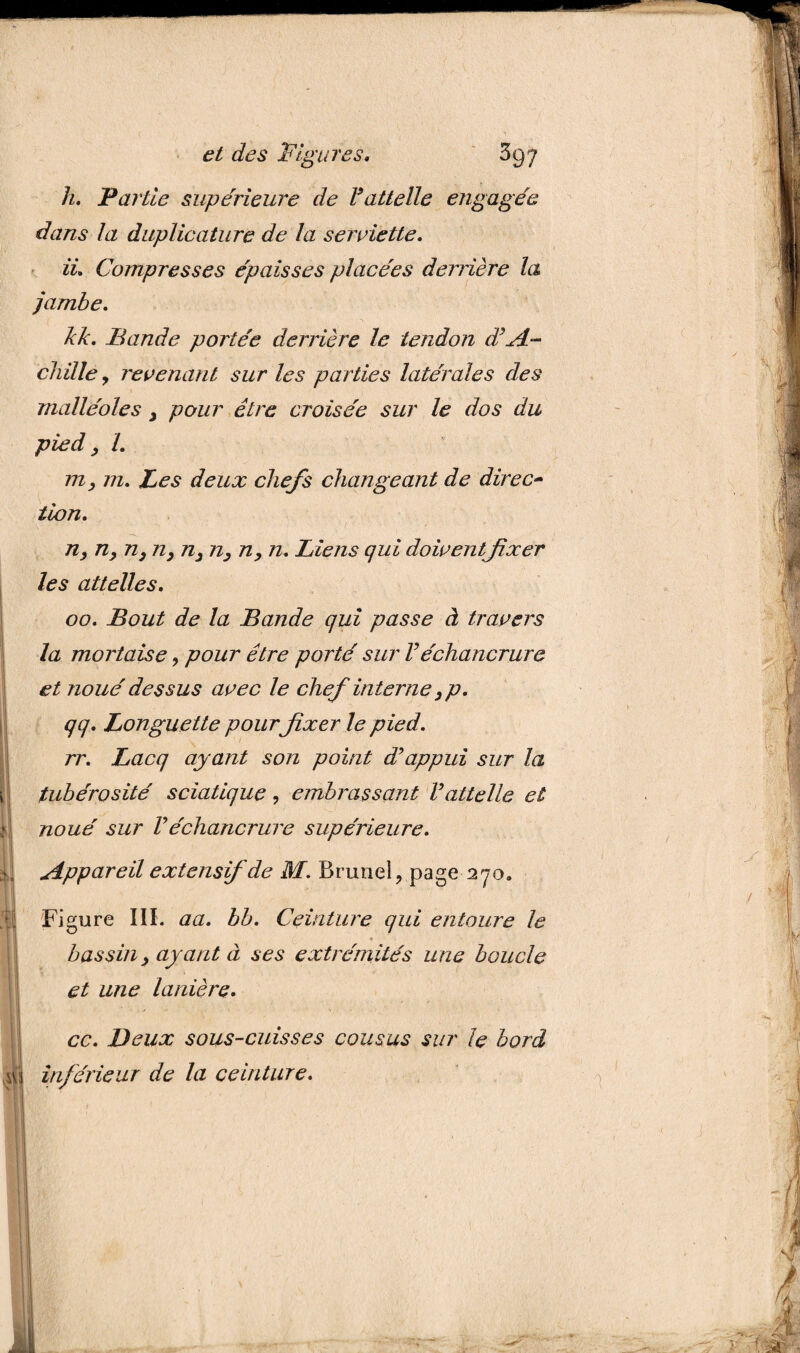 et des Figures. 397
h. Partie supérieure de l'attelle engagée
dans la duplicature de la serviette.
ii. Compresses épaisses placées derrière la
jambe.
kk. Bande portée derrière le tendon d'A-
chille, revenant sur les parties latérales des
malléoles, pour être croisée sur le dos du
pied, l.
m, m. Les deux chefs changeant de direc-
tion.
n, n, n, n, n, n, n, n. Liens qui doivent fixer
les attelles.
oo. Bout de la Bande qui passe à travers
la mortaise, pour être porté sur l'échancrure
et noué dessus avec le chef interne, p.
qq. Longuette pour fixer le pied.
rr. Lacq ayant son point d'appui sur la
tubérosité sciatique, embrassant l'attelle et
noué sur l'échancrure supérieure.
Appareil extensif de M. Brunel, page 270.
Figure III. aa. bb. Ceinture qui entoure le
bassin, ayant à ses extrémités une boucle
et une lanière.
cc. Deux sous-cuisses cousus sur le bord
inférieur de la ceinture.